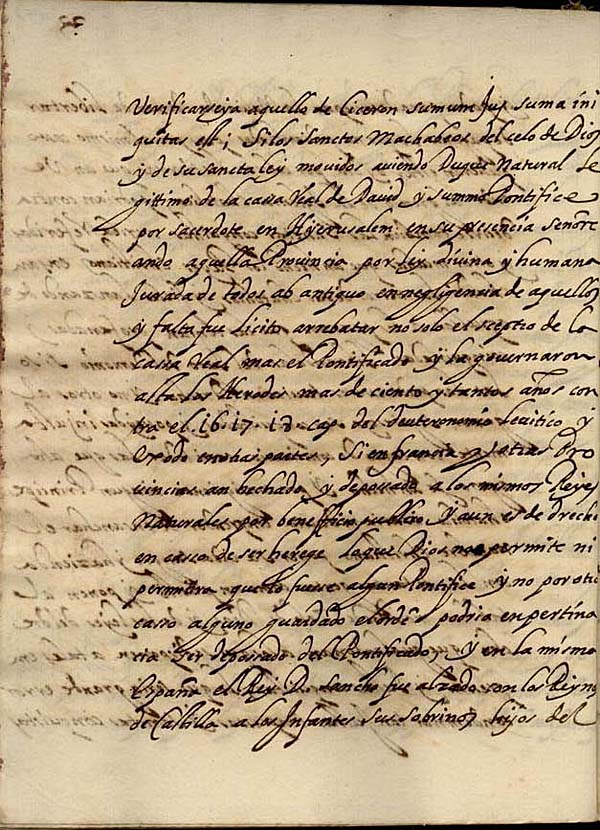 Verificarseya aquello de Ciceron sumum Jus suma ini
quitas est; Si los Sanctos Machabeos del celo de Dios
y de su sancta ley movidos aviendo Duque Natural le
gittimo de la casa Real de David y summo Pontifice
por sacerdote en Hyerusalem en su presencia señore
ando aquella Provincia por ley divina y humana
Jurada de todos ab antiquo en negligencia de aquellos
y falta fue licito arrebatar no solo el sceptro de la
casa Real mas el Pontificado y la governaron
asta los Herodes mas de ciento y tantos años con
tra el 16. 17. 18 cap. del deuteronomio levitico y
Exodo en otras partes, Si en francia y otras Pro
vincias an hechado y depouado a los mismos Reyes
Naturales por beneficio publico Y aun es de drecho
en casso de ser herege lo que Dios no permite ni
permitira que lo fuese algun Pontifice y no por otro
casso alguno guardado el ordẽ podria en pertina
cia ser deposado del Pontificado, y en la misma
España el Rey D. Sancho fue alzado con los Reynos
de Castilla a los Infantes sus sobrinos hijos del